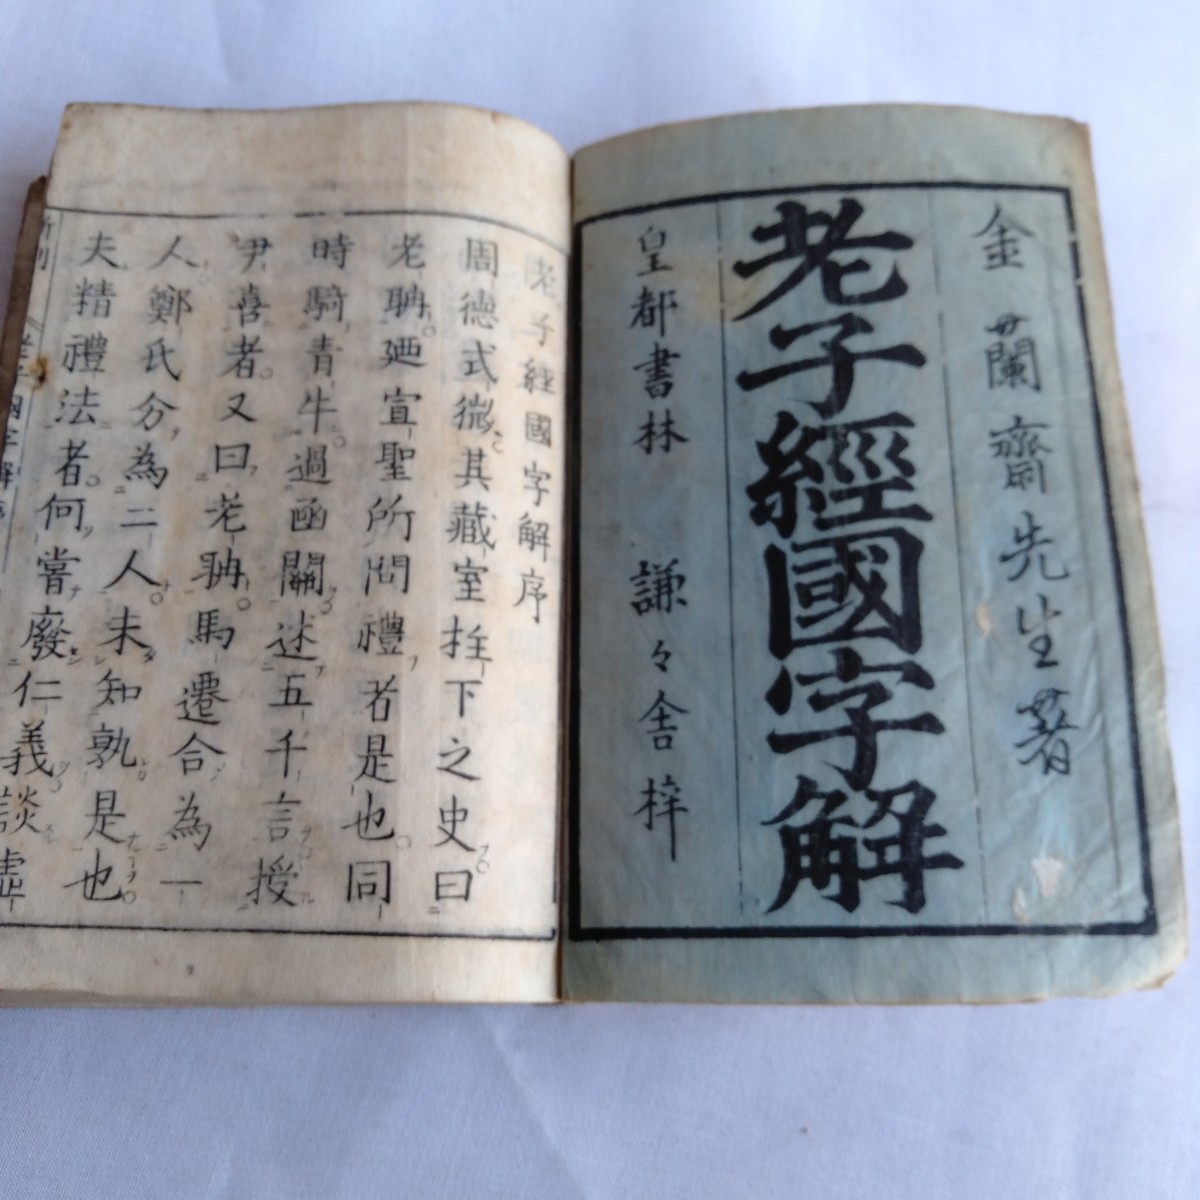 金蘭齋先生著
老子經國字解
皇都書林 謙々舎梓
老子經國字解序
周德式微其藏室柱下之史曰
老聃廼宣聖所問禮者是也同
時騎青牛過函關述五千言授
尹喜者又曰老聃馬遷合為一
人鄭氏分為二人未知孰是也
夫精禮法者何嘗廢仁義談虛